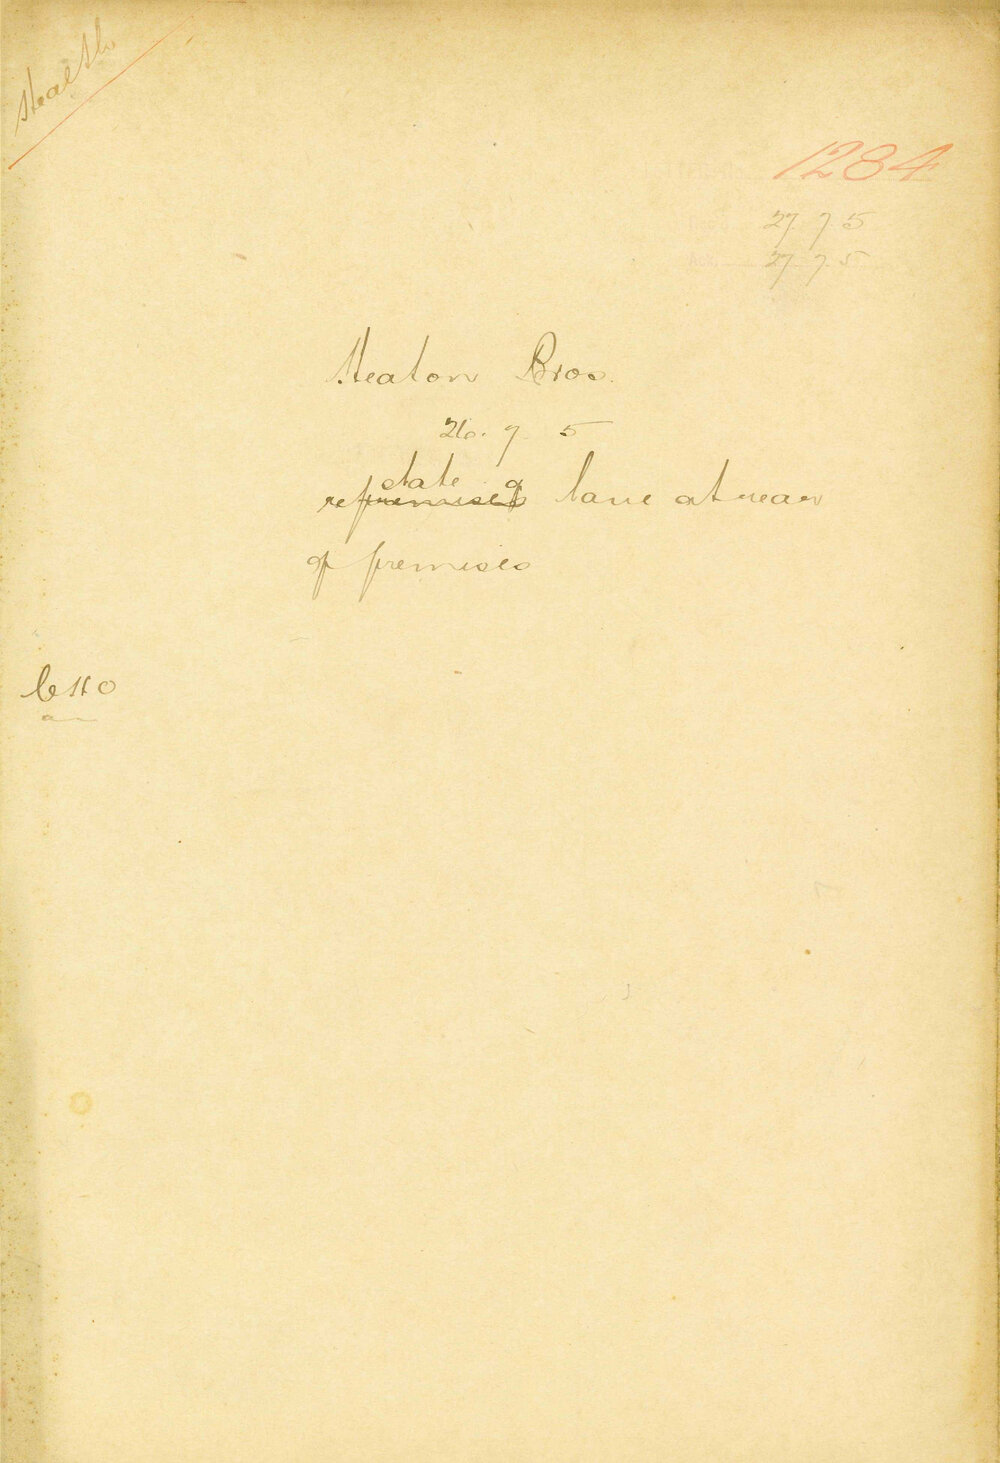 Health
1284
27. 7. 5
27. 7. 5
Heaton Bros.
26. 7. 5
state of
re premises lane at rear
of premises
CHO